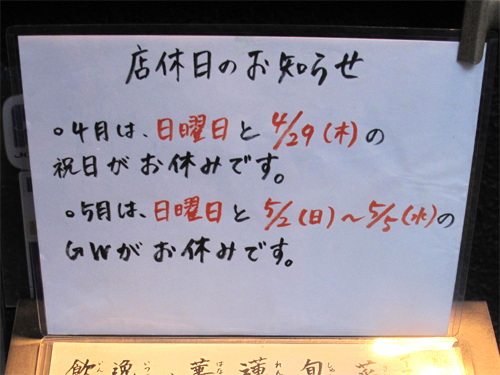 店休日のお知らせ
○4月は、日曜日と4/29(木)の
祝日がお休みです。
○5月は、日曜日と5/2(日)～5/5(水)の
GWがお休みです。